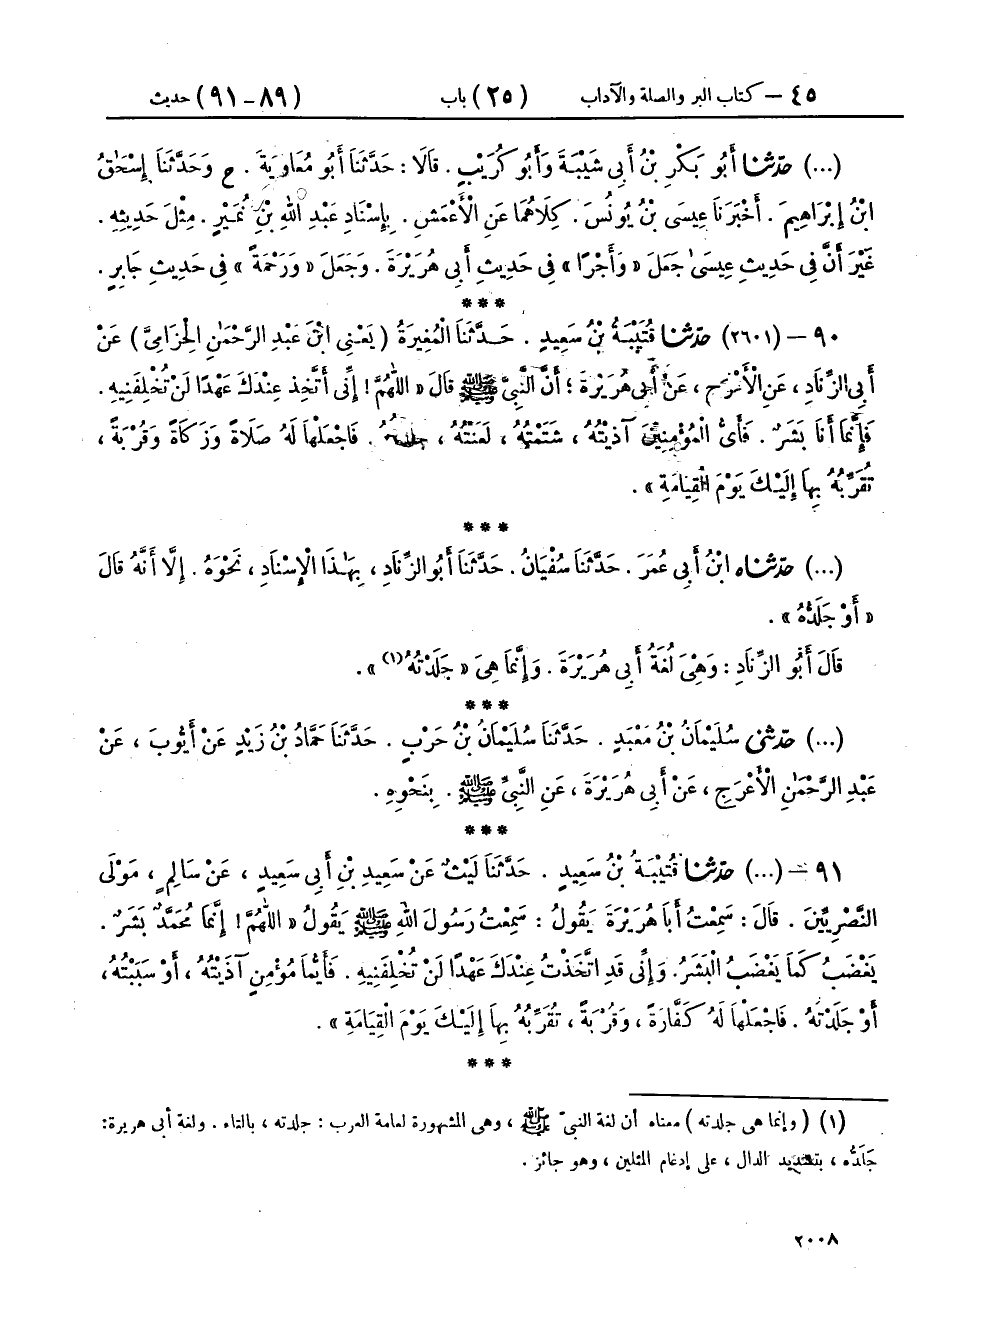 ٤٥ – كتاب البر والصلة والآداب (٢٥) باب (٨٩–٩١) حديث
(...) حَدَّثَنَا أَبُو بَكْرِ بْنُ أَبِي شَيْبَةَ وَأَبُو كُرَيْبٍ . قَالَا : حَدَّثَنَا أَبُو مُعَاوِيَةَ . ح وَحَدَّثَنَا إِسْحَٰقُ
ابْنُ إِبْرَاهِيمَ . أَخْبَرَنَا عِيسَى بْنُ يُونُسَ . كِلَاهُمَا عَنِ الْأَعْمَشِ . بِإِسْنَادِ عَبْدِ اللهِ بْنِ نُمَيْرٍ . مِثْلَ حَدِيثِهِ .
غَيْرَ أَنَّ فِي حَدِيثِ عِيسَىٰ جَعَلَ « وَأَجْرًا » فِي حَدِيثِ أَبِي هُرَيْرَةَ . وَجَعَلَ « وَرَحْمَةً » فِي حَدِيثِ جَابِرٍ .
***
٩٠ – (٢٦٠١) حَدَّثَنَا قُتَيْبَةُ بْنُ سَعِيدٍ . حَدَّثَنَا الْمُغِيرَةُ ( يَعْنِي ابْنَ عَبْدِ الرَّحْمَٰنِ الْحِزَامِيَّ ) عَنْ
أَبِي الزِّنَادِ ، عَنِ الْأَعْرَجِ ، عَنْ أَبِي هُرَيْرَةَ ؛ أَنَّ النَّبِيَّ ﷺ قَالَ « اللَّهُمَّ ! إِنِّي أَتَّخِذُ عِنْدَكَ عَهْدًا لَنْ تُخْلِفَنِيهِ .
فَإِنَّمَا أَنَا بَشَرٌ . فَأَيُّ الْمُؤْمِنِينَ آذَيْتُهُ ، شَتَمْتُهُ ، لَعَنْتُهُ ، جَلَدْتُهُ . فَاجْعَلْهَا لَهُ صَلَاةً وَزَكَاةً وَقُرْبَةً ،
تُقَرِّبُهُ بِهَا إِلَيْكَ يَوْمَ الْقِيَامَةِ » .
***
(...) حَدَّثَنَاه ابْنُ أَبِي عُمَرَ . حَدَّثَنَا سُفْيَانُ . حَدَّثَنَا أَبُو الزِّنَادِ ، بِهَٰذَا الْإِسْنَادِ ، نَحْوَهُ . إِلَّا أَنَّهُ قَالَ
« أَوْ جَلَدُّهُ » .
قَالَ أَبُو الزِّنَادِ : وَهْيَ لُغَةُ أَبِي هُرَيْرَةَ . وَإِنَّمَا هِيَ « جَلَدْتُهُ(١) » .
***
(...) حَدَّثَنِي سُلَيْمَانُ بْنُ مَعْبَدٍ . حَدَّثَنَا سُلَيْمَانُ بْنُ حَرْبٍ . حَدَّثَنَا حَمَّادُ بْنُ زَيْدٍ عَنْ أَيُّوبَ ، عَنْ
عَبْدِ الرَّحْمَٰنِ الْأَعْرَجِ ، عَنْ أَبِي هُرَيْرَةَ ، عَنِ النَّبِيِّ ﷺ . بِنَحْوِهِ .
***
٩١ – (...) حَدَّثَنَا قُتَيْبَةُ بْنُ سَعِيدٍ . حَدَّثَنَا لَيْثٌ عَنْ سَعِيدِ بْنِ أَبِي سَعِيدٍ ، عَنْ سَالِمٍ ، مَوْلَى
النَّصْرِيِّينَ . قَالَ : سَمِعْتُ أَبَا هُرَيْرَةَ يَقُولُ : سَمِعْتُ رَسُولَ اللهِ ﷺ يَقُولُ « اللَّهُمَّ ! إِنَّمَا مُحَمَّدٌ بَشَرٌ .
يَغْضَبُ كَمَا يَغْضَبُ الْبَشَرُ. وَإِنِّي قَدِ اتَّخَذْتُ عِنْدَكَ عَهْدًا لَنْ تُخْلِفَنِيهِ . فَأَيُّمَا مُؤْمِنٍ آذَيْتُهُ ، أَوْ سَبَبْتُهُ ،
أَوْ جَلَدْتُهُ . فَاجْعَلْهَا لَهُ كَفَّارَةً ، وَقُرْبَةً ، تُقَرِّبُهُ بِهَا إِلَيْكَ يَوْمَ الْقِيَامَةِ » .
***
(١) ( وإنما هي جلدته ) معناه أن لغة النبيّ ﷺ ، وهي المشهورة لعامة العرب : جلدته ، بالتاء . ولغة أبي هريرة:
جَلَدُّه ، بتشديد الدال ، على إدغام المثلين ، وهو جائز .
٢٠٠٨